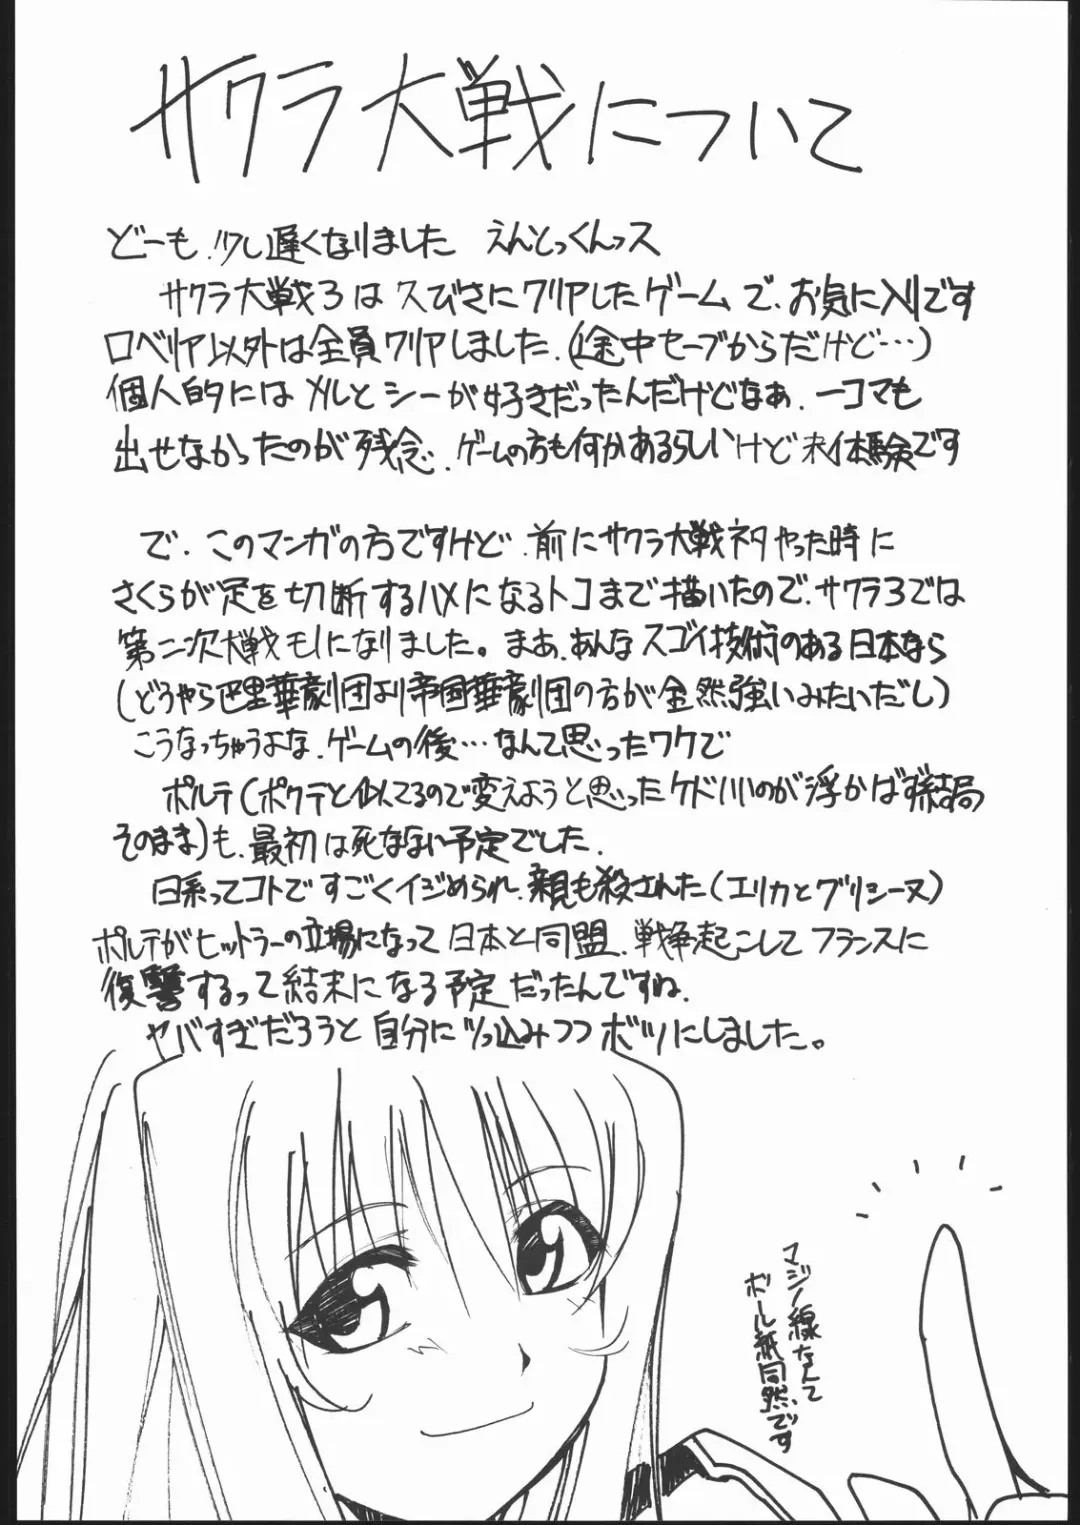 サクラ大戦について
どーも、少し遅くなりました えんとっくんっス
サクラ大戦3は久びさにクリアしたゲームで、お気に入りです
ロベリア以外は全員クリアしました、(途中セーブからだけど…)
個人的にはメルとシーが好きだったんだけどなぁ、一コマも
出せなかったのが残念、ゲームの方も何かあるらしいけど未体験です
で、このマンガの方ですけど、前にサクラ大戦ネタやった時に
さくらが足を切断するハメになるトコまで描いたので、サクラ3では
第二次大戦モノになりました。まぁ、あんなスゴイ技術のある日本なら
(どうやら巴里華劇団より帝国華劇団の方が全然強いみたいだし)
こうなっちゃうよな、ゲームの後…なんて思ったワケで
ポルテ(ポクテと似てるので変えようと思ったケドいいのが浮かばず結局
そのまま)も、最初は死なない予定でした、
日系ってコトですごくイジめられ、親も殺された(エリカとグリシーヌ)
ポルテがヒットラーの立場になって日本と同盟、戦争起こしてフランスに
復讐するって結末になる予定だったんですね、
ヤバすぎだろうと自分にツっ込みつつボツにしました。
マジノ線なんて
ボール紙同然、です